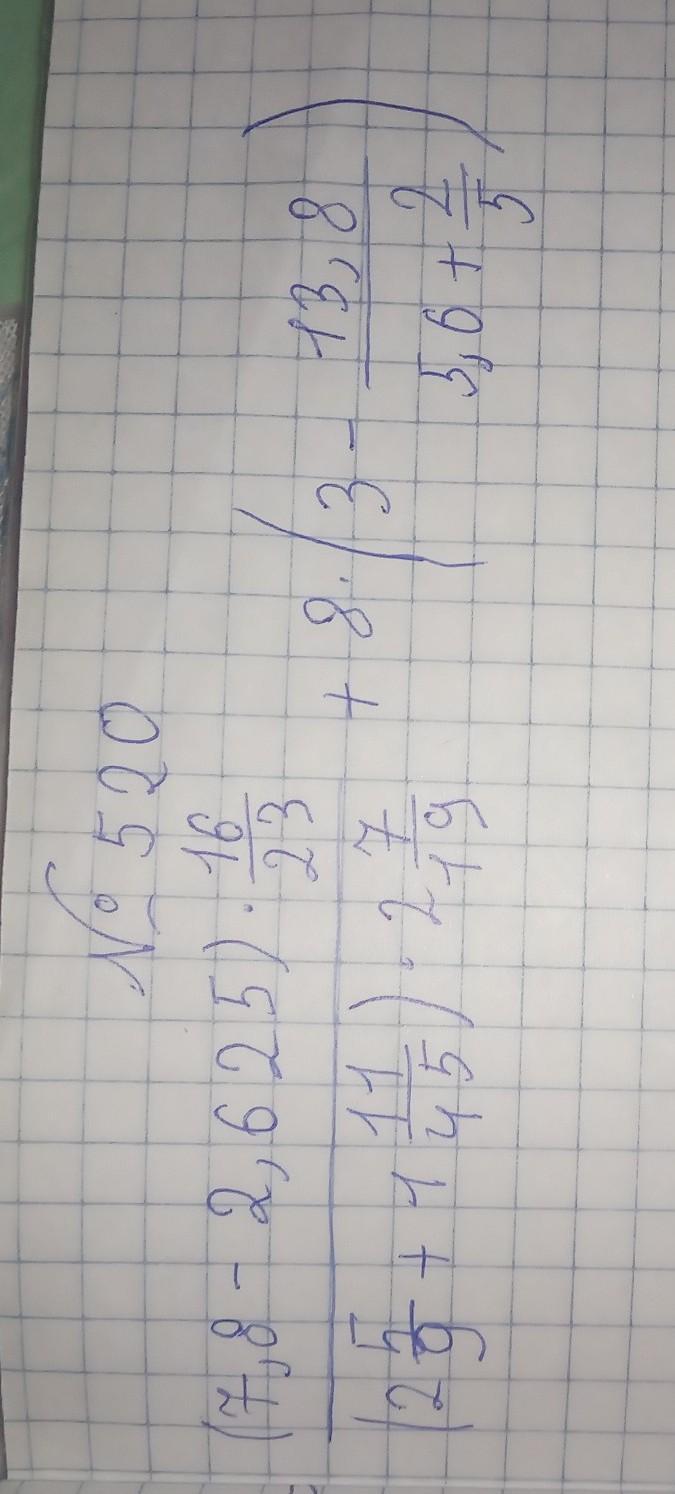 № 520
(7,8 - 2,625) · 16/23
(2 5/9 + 1 11/45) · 2 7/19
+ 8 · (3 -
13,8
5,6 + 2/5
)